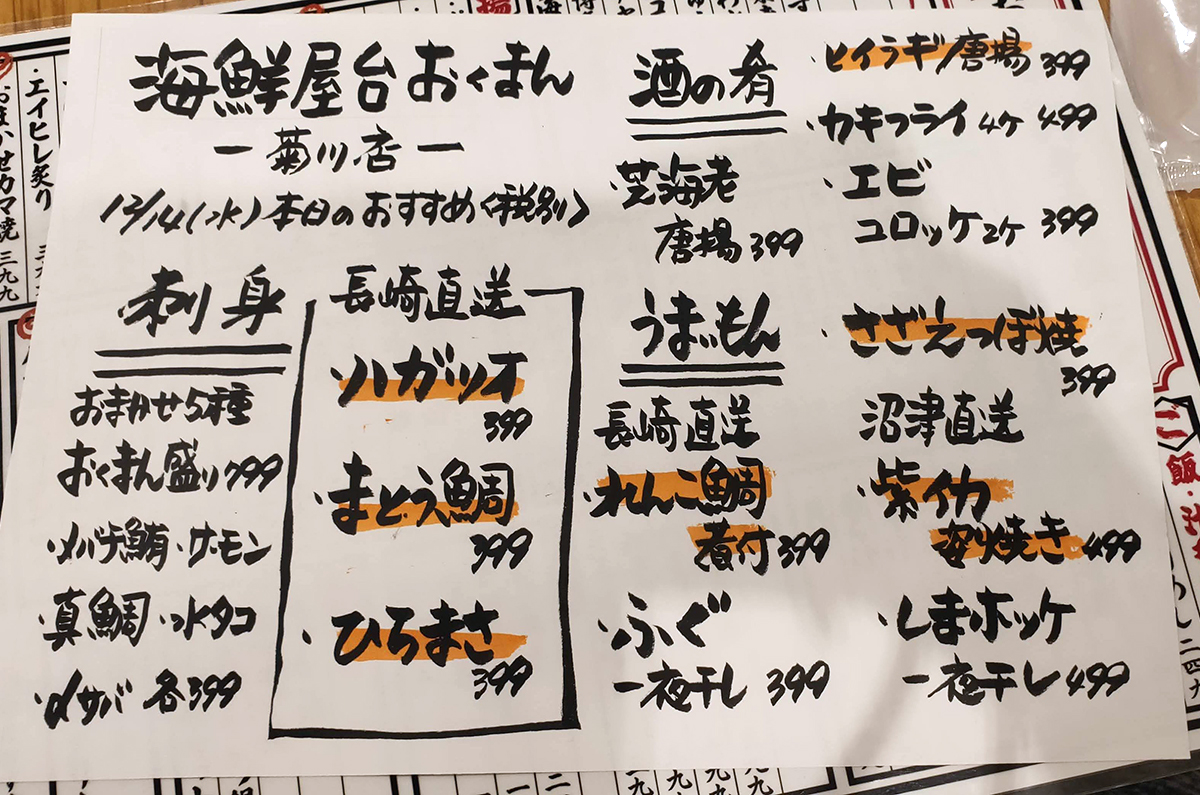 海鮮屋台おくまん
ー菊川店ー
12/14(水)本日のおすすめ〈税別〉
刺身
おまかせ5種
おくまん盛り799
・メバチ鮪・サーモン
・真鯛・水タコ
・〆サバ 各399
長崎直送
・ソハガツオ
399
・まとう鯛
399
・ひらまさ
399
酒の肴
・芝海老
唐揚399
・ヒイラギ唐揚399
・カキフライ4ケ 499
・エビ
コロッケ2ケ 399
うまいもん
長崎直送
・れんこ鯛
煮付399
・ふぐ
一夜干し 399
・さざえつぼ焼
399
沼津直送
・紫イカ
姿焼き499
・しまホッケ
一夜干し499
・エイヒレ炙り
おまかせカマ焼 三九九